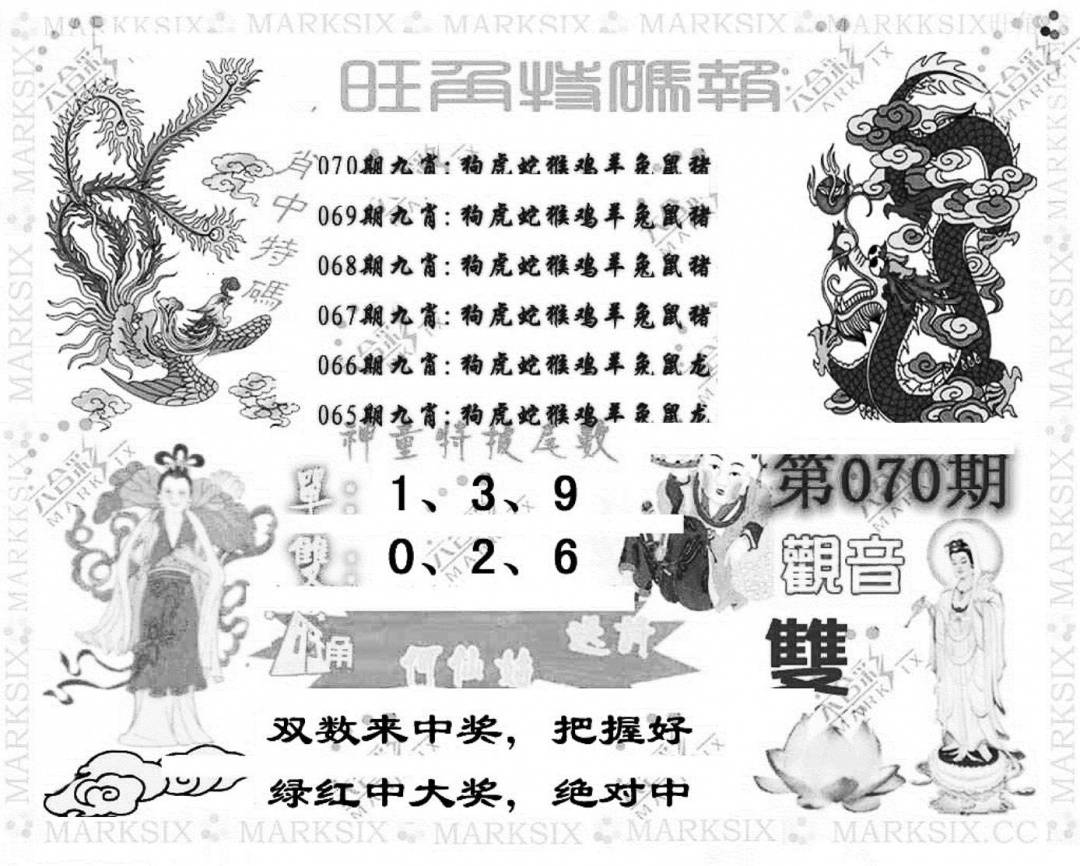 旺角特碼報
肖中特碼
070期九肖:狗虎蛇猴鸡羊兔鼠猪
069期九肖:狗虎蛇猴鸡羊兔鼠猪
068期九肖:狗虎蛇猴鸡羊兔鼠猪
067期九肖:狗虎蛇猴鸡羊兔鼠猪
066期九肖:狗虎蛇猴鸡羊兔鼠龙
065期九肖:狗虎蛇猴鸡羊兔鼠龙
神童特报尾數
單:1、3、9
雙:0、2、6
第070期
觀音
雙
何仙姑
双数来中奖，把握好
绿红中大奖，绝对中
MARKSIX MARKSIX MARKSIX MARKSIX MARKSIX.CC